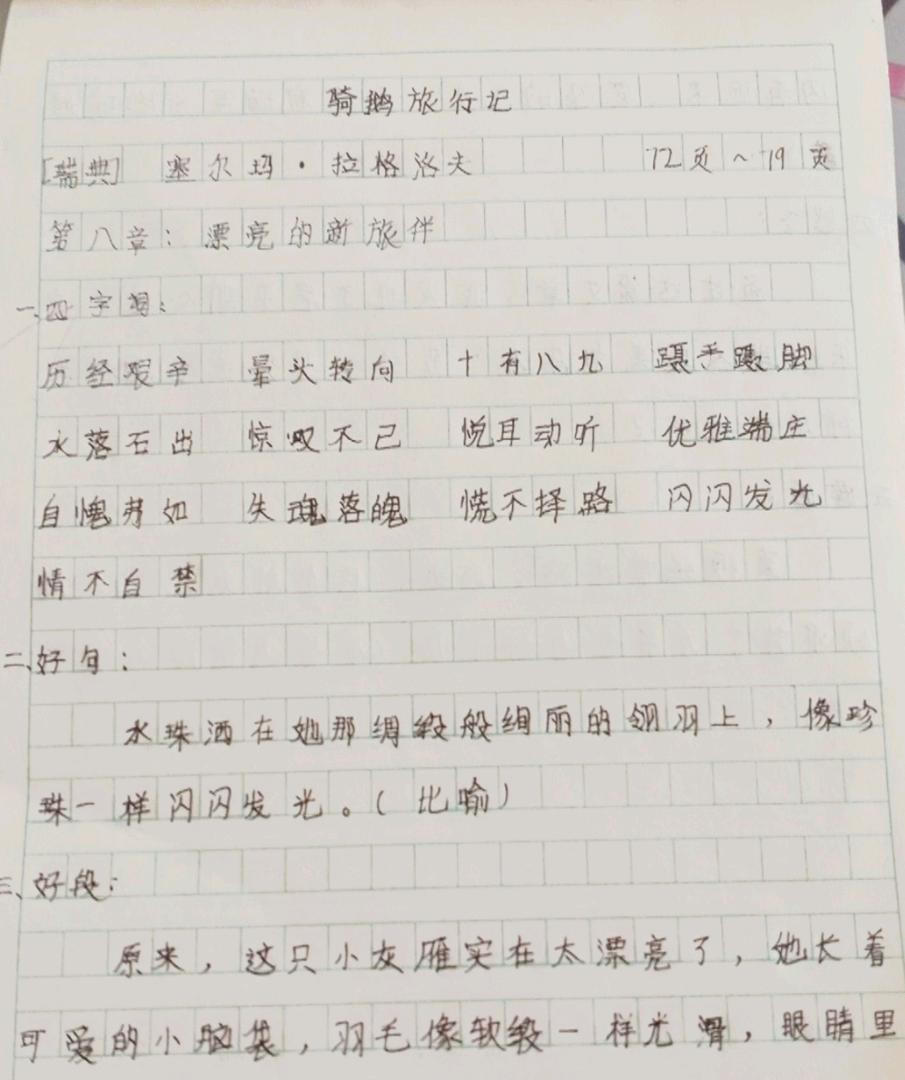 骑鹅旅行记
[瑞典] 塞尔玛·拉格洛夫 72页~79页
第八章：漂亮的新旅伴
一、四字词：
历经艰辛 晕头转向 十有八九 蹑手蹑脚
水落石出 惊叹不已 悦耳动听 优雅端庄
自愧弗如 失魂落魄 慌不择路 闪闪发光
情不自禁
二、好句：
水珠洒在她那绸缎般绚丽的翎羽上，像珍
珠一样闪闪发光。(比喻)
三、好段：
原来，这只小灰雁实在太漂亮了，她长着
可爱的小脑袋，羽毛像软缎一样光滑，眼睛里